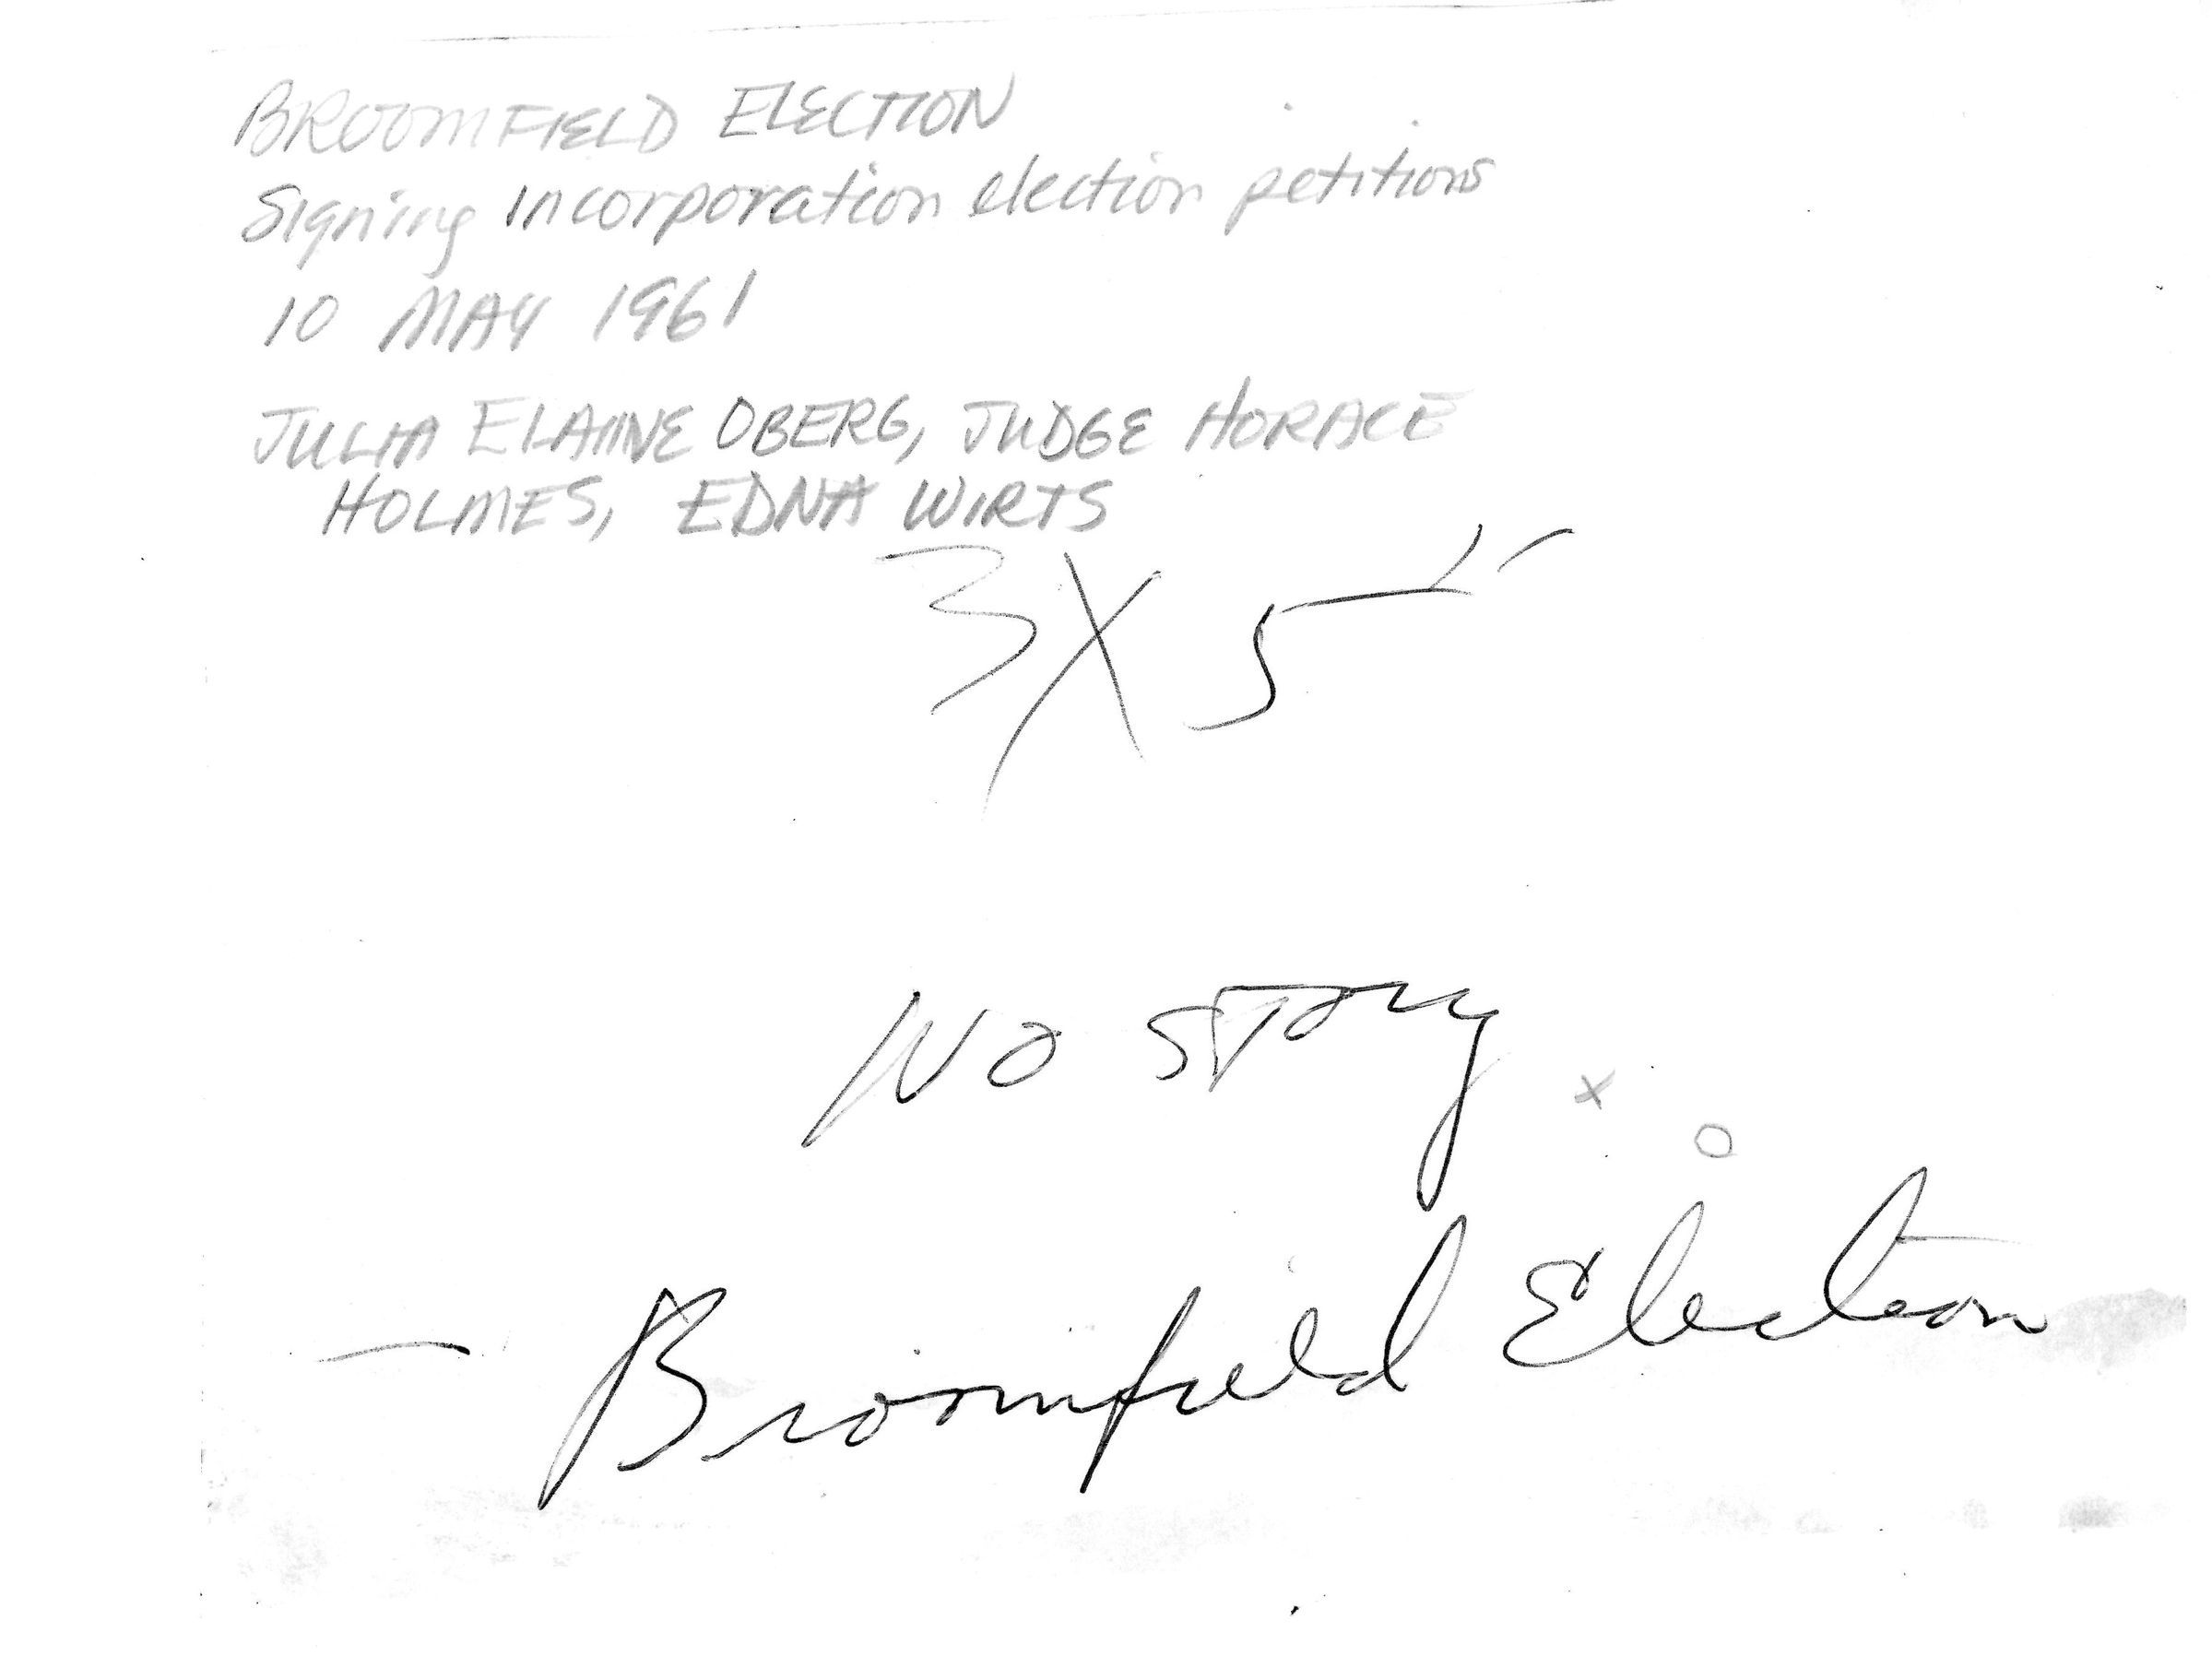 BROOMFIELD ELECTION
Signing incorporation election petitions
10 MAY 1961
JULIA ELAINE OBERG, JUDGE HORACE
HOLMES, EDNA WIRTS
3 X 5"
No story
x
o
— Broomfield Election